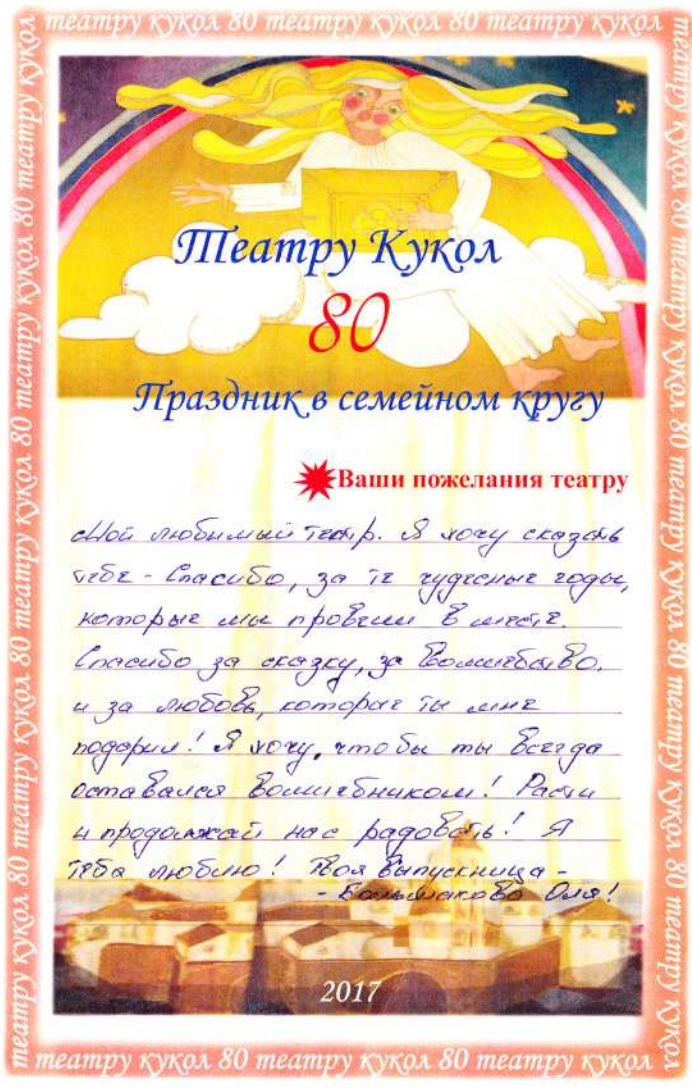 театру кукол 80 театру кукол 80 театру кукол 80 театру кукол
Театру Кукол
80
Праздник в семейном кругу
Ваши пожелания театру
Мой любимый театр. Я хочу сказать
тебе - Спасибо, за те чудесные годы,
которые мы провели в месте.
Спасибо за сказку, за волшебство,
и за любовь, которые ты мне
подарил! Я хочу, что бы ты всегда
оставался волшебником! Расти
и продолжай нас радовать! Я
тебя люблю! Твоя выпускница -
- Большакова Оля!
2017
театру кукол 80 театру кукол 80 театру кукол 80 театру кукол